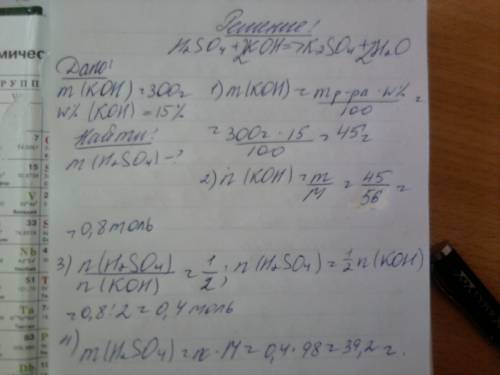 Решение!
H₂SO₄+2KOH=>K₂SO₄+2H₂O
Дано!
m(KOH)=300г
w%(KOH)=15%
Найти!
m(H₂SO₄)-?
1) m(KOH)= mр-ра·w% / 100 =
= 300г·15 / 100 = 45г
2) n(KOH)= m/M = 45/56 =
=0,8моль
3) n(H₂SO₄) / n(KOH) = 1/2; n(H₂SO₄)= 1/2 n(KOH)
=0,8:2=0,4моль
4) m(H₂SO₄)=n·M=0,4·98=39,2г.
мичес
ГРУПП
V
Nb
Ta